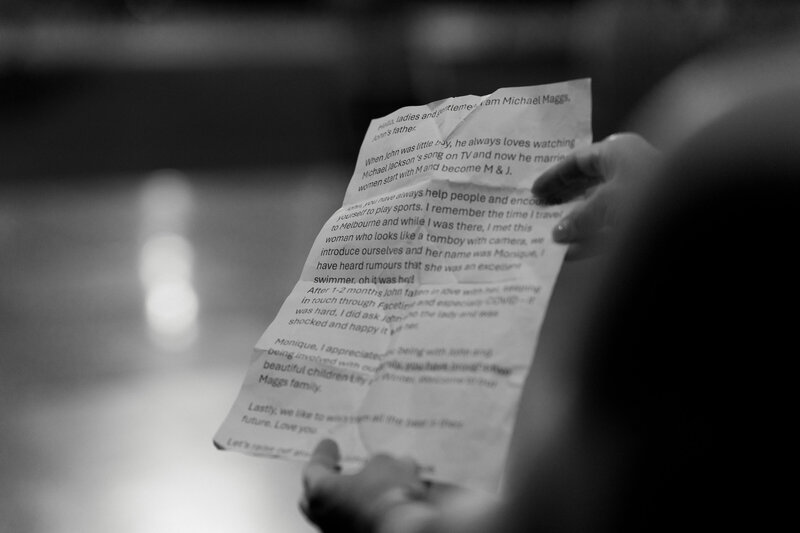 Hello, ladies and gentlemen, I am Michael Maggs,
John's father.
When John was little boy, he always loves watching
Michael Jackson's song on TV and now he married
women start with M and become M & J.
John, you have always help people and encourage
yourself to play sports. I remember the time I travel
to Melbourne and while I was there, I met this
woman who looks like a tomboy with camera, we
introduce ourselves and her name was Monique, I
have heard rumours that she was an excellent
swimmer, oh it was her!
After 1-2 months John fallen in love with her, keeping
in touch through Facetime and especially COVID-19
was hard. I did ask John the lady and was
shocked and happy it her.
Monique, I appreciate being with John and
being involved with our family, you have
beautiful children Lily Welcome to the
Maggs family.
Lastly, we like to all the best in their
future. Love you.
Let's raise